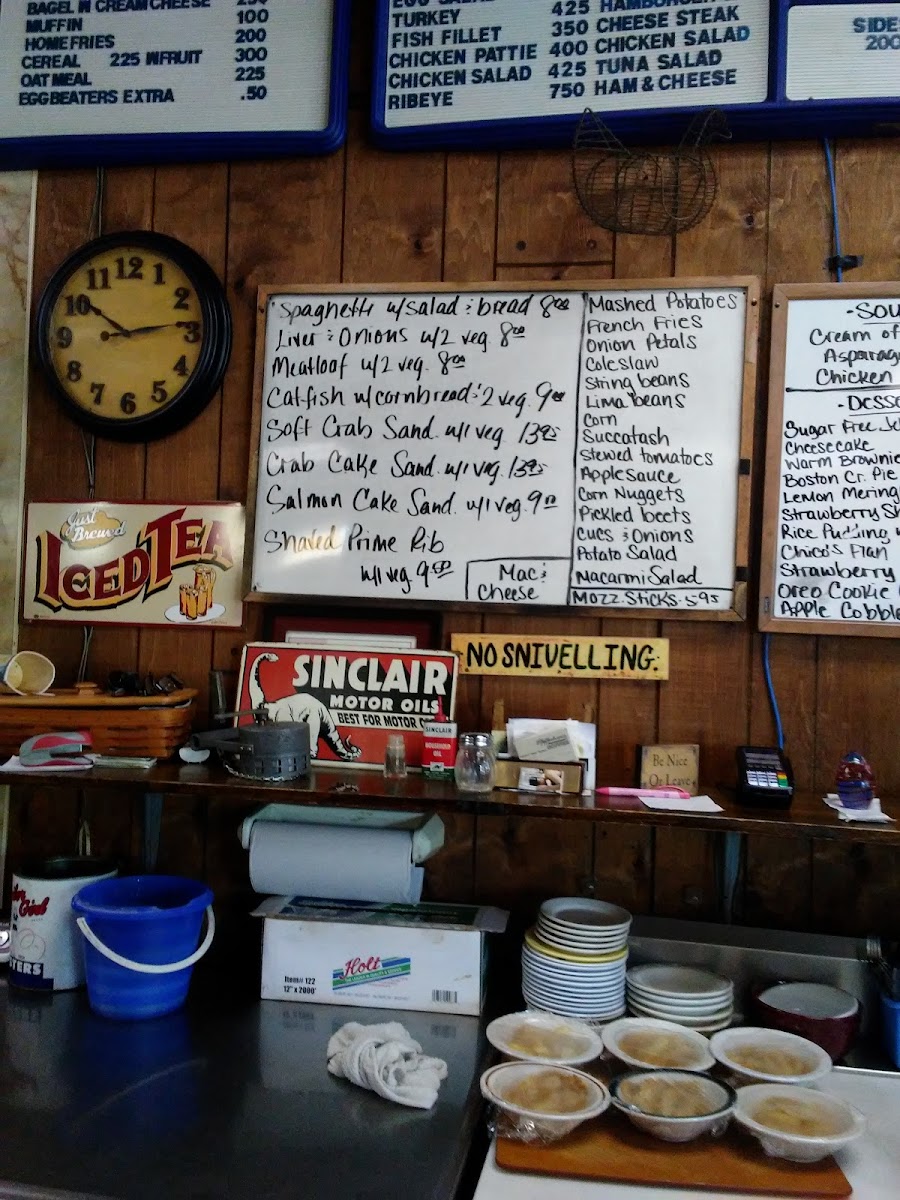 BAGEL W CREAM CHEESE
MUFFIN 100
HOMEFRIES 200
CEREAL 225 W FRUIT 300
OATMEAL 225
EGGBEATERS EXTRA .50
TURKEY 425
FISH FILLET 350
CHICKEN PATTIE 400
CHICKEN SALAD 425
RIBEYE 750
CHEESE STEAK
CHICKEN SALAD
TUNA SALAD
HAM & CHEESE
SIDES
200
12 1 2 3 4 5 6 7 8 9 10 11
Spaghetti w/salad & bread 8.00
Liver & Onions w/2 veg. 8.00
Meatloaf w/2 veg. 8.00
Catfish w/cornbread & 2 veg. 9.00
Soft Crab Sand. w/1 veg. 13.95
Crab Cake Sand. w/1 veg. 13.95
Salmon Cake Sand. w/1 veg. 9.00
Shaved Prime Rib
w/1 veg 9.50
Mac &
Cheese
Mashed Potatoes
French Fries
Onion Petals
Coleslaw
String beans
Lima beans
Corn
Succatash
Stewed tomatoes
Applesauce
Corn Nuggets
Pickled beets
Cucs & Onions
Potato Salad
Macaroni Salad
Mozz. Sticks. 5.95
Cream of
Chicken
Sugar Free
Cheesecake
Warm Brownie
Boston Cr. Pie
Lemon
Strawberry
Rice Pudding
Chico's Flan
Strawberry
Oreo Cookie
Apple
Just
Brewed
ICED TEA
NO SNIVELLING.
SINCLAIR
MOTOR OILS
BEST FOR MOTOR
SINCLAIR
HOUSEHOLD
OIL
Be Nice
Or Leave
Girl
Holt
Item# 122
12" x 2000'